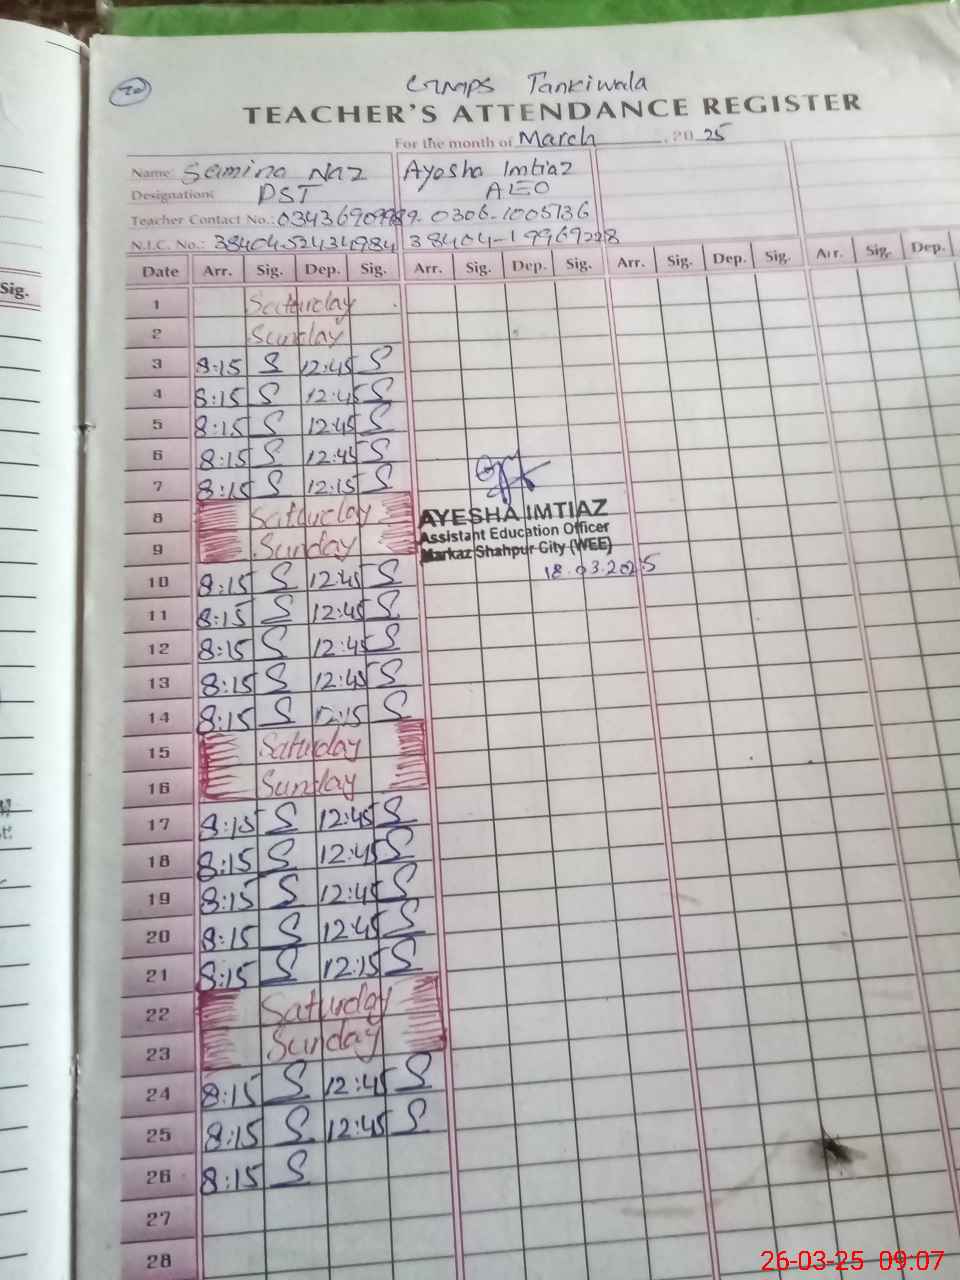 20
GMPS Tankiwala
TEACHER'S ATTENDANCE REGISTER
For the month of March, 20 25
Name: Samina Naz Ayesha Imtiaz
Designation: PST AEO
Teacher Contact No.: 0306-1005136
N.I.C. No.: 38404-19969228
Sig.
Date Arr. Sig. Dep. Sig. Arr. Sig. Dep. Sig. Arr. Sig. Dep. Sig. Arr. Sig. Dep.
1 Saturday
2 Sunday
3 8:15 S 12:45 S
4 8:15 S 12:45 S
5 8:15 S 12:45 S
6 8:15 S 12:45 S
7 8:15 S 12:15 S
8 Saturday
9 Sunday
AYESHA IMTIAZ
Assistant Education Officer
Markaz Shahpur City (WEE)
18.03.2025
10 8:15 S 12:45 S
11 8:15 S 12:45 S
12 8:15 S 12:45 S
13 8:15 S 12:45 S
14 8:15 S 12:15 S
15 Saturday
16 Sunday
17 8:15 S 12:45 S
18 8:15 S 12:45 S
19 8:15 S 12:45 S
20 8:15 S 12:45 S
21 8:15 S 12:15 S
22 Saturday
23 Sunday
24 8:15 S 12:45 S
25 8:15 S 12:45 S
26 8:15 S
27
28
26-03-25 09:07